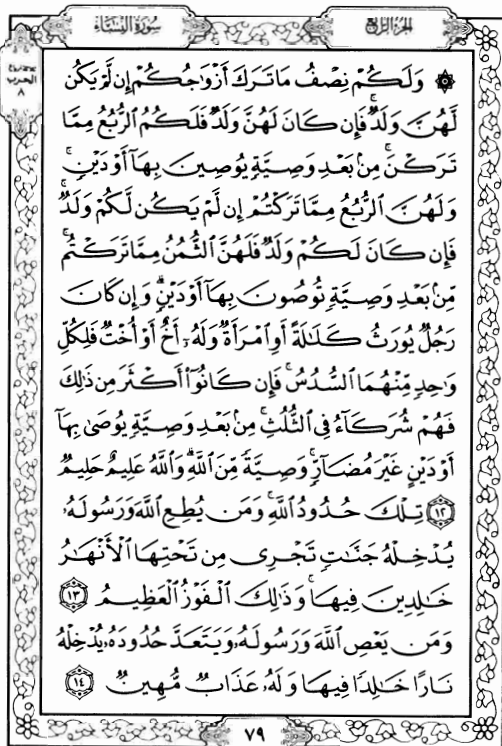 سُورَةُ النِّسَاءِ
الجُزْءُ الرَّابِعُ
الحزب
٨
۞ وَلَكُمْ نِصْفُ مَا تَرَكَ أَزْوَٰجُكُمْ إِن لَّمْ يَكُن
لَّهُنَّ وَلَدٌ ۚ فَإِن كَانَ لَهُنَّ وَلَدٌ فَلَكُمُ ٱلرُّبُعُ مِمَّا
تَرَكْنَ ۚ مِنۢ بَعْدِ وَصِيَّةٍ يُوصِينَ بِهَآ أَوْ دَيْنٍ ۚ
وَلَهُنَّ ٱلرُّبُعُ مِمَّا تَرَكْتُمْ إِن لَّمْ يَكُن لَّكُمْ وَلَدٌ ۚ
فَإِن كَانَ لَكُمْ وَلَدٌ فَلَهُنَّ ٱلثُّمُنُ مِمَّا تَرَكْتُم ۚ
مِّنۢ بَعْدِ وَصِيَّةٍ تُوصُونَ بِهَآ أَوْ دَيْنٍ ۗ وَإِن كَانَ
رَجُلٌ يُورَثُ كَلَٰلَةً أَوِ ٱمْرَأَةٌ وَلَهُۥٓ أَخٌ أَوْ أُخْتٌ فَلِكُلِّ
وَٰحِدٍ مِّنْهُمَا ٱلسُّدُسُ ۚ فَإِن كَانُوٓا۟ أَكْثَرَ مِن ذَٰلِكَ
فَهُمْ شُرَكَآءُ فِى ٱلثُّلُثِ ۚ مِنۢ بَعْدِ وَصِيَّةٍ يُوصَىٰ بِهَآ
أَوْ دَيْنٍ غَيْرَ مُضَآرٍّ ۚ وَصِيَّةً مِّنَ ٱللَّهِ ۗ وَٱللَّهُ عَلِيمٌ حَلِيمٌ
١٢ تِلْكَ حُدُودُ ٱللَّهِ ۚ وَمَن يُطِعِ ٱللَّهَ وَرَسُولَهُۥ
يُدْخِلْهُ جَنَّٰتٍ تَجْرِى مِن تَحْتِهَا ٱلْأَنْهَٰرُ
خَٰلِدِينَ فِيهَا ۚ وَذَٰلِكَ ٱلْفَوْزُ ٱلْعَظِيمُ ١٣
وَمَن يَعْصِ ٱللَّهَ وَرَسُولَهُۥ وَيَتَعَدَّ حُدُودَهُۥ يُدْخِلْهُ
نَارًا خَٰلِدًا فِيهَا وَلَهُۥ عَذَابٌ مُّهِينٌ ١٤
٧٩